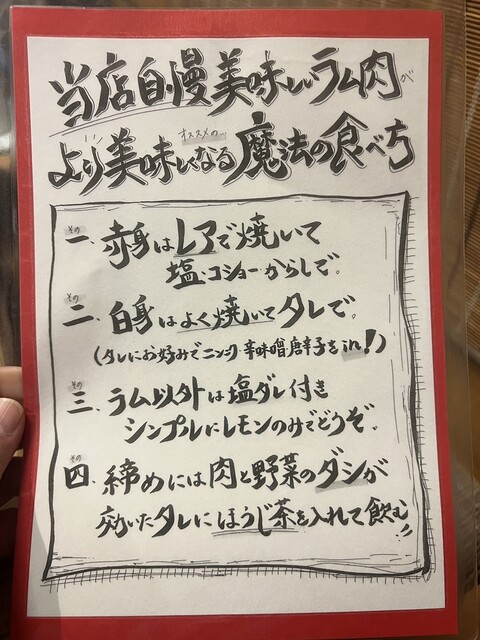 当店自慢美味しいラム肉が
より美味しくなるオススメの…魔法の食べ方
その一、赤身はレアで焼いて
塩・コショー・からしで。
その二、白身はよく焼いてタレで。
(タレにお好みでニンニク・辛味噌唐辛子をin!)
その三、ラム以外は塩ダレ付き
シンプルにレモンのみでどうぞ。
その四、締めには肉と野菜のダシが
効いたタレにほうじ茶を入れて飲む!!